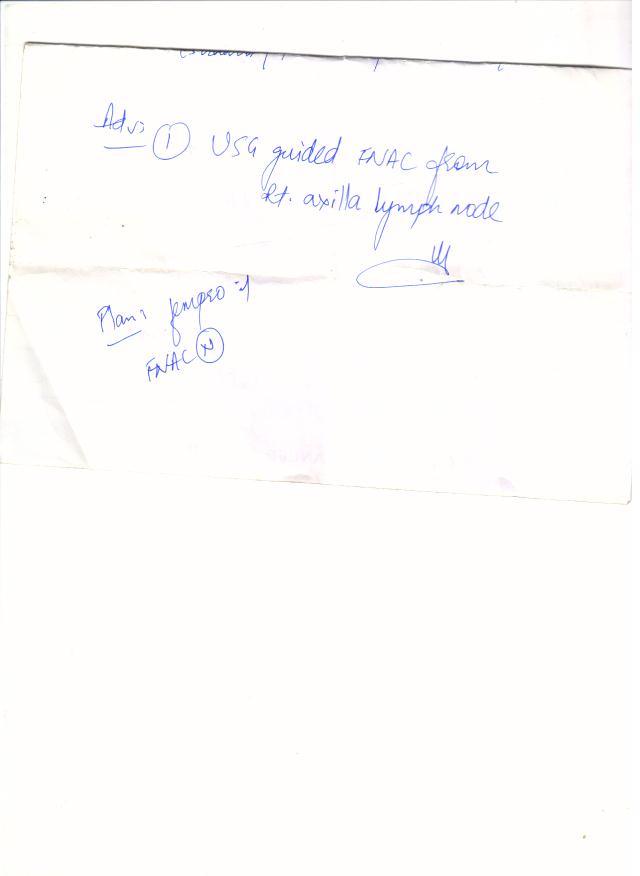 Adv:
① USG guided FNAC from
Rt. axilla lymph node
Plan:
FNAC Ⓝ